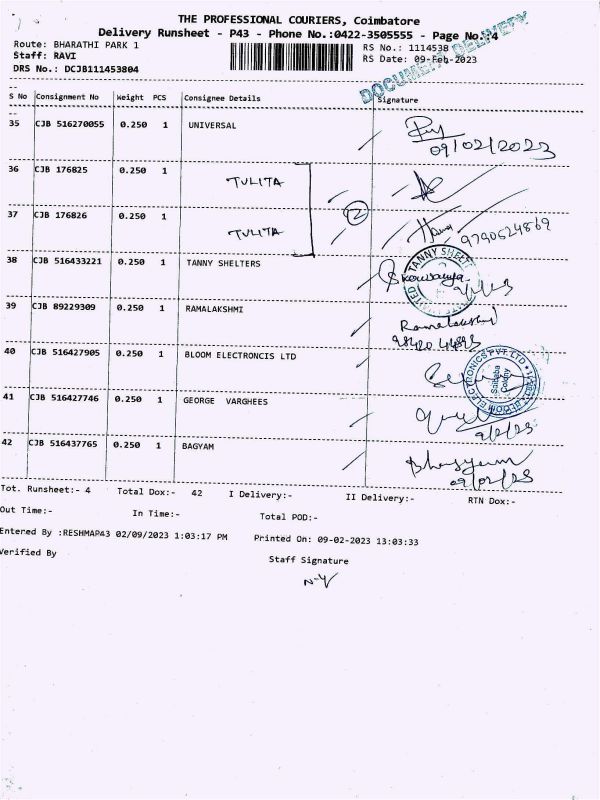 THE PROFESSIONAL COURIERS, Coimbatore
Delivery Runsheet - P43 - Phone No.:0422-3505555 - Page No.:4
Route: BHARATHI PARK 1
RS No.: 1114538
Staff: RAVI
RS Date: 09-Feb-2023
DRS No.: DCJB111453804
DOCUMENT DELIVERY
S No Consignment No Weight PCS Consignee Details Signature
35 CJB 516270055 0.250 1 UNIVERSAL
09/02/2023
36 CJB 176825 0.250 1 TULITA
2
37 CJB 176826 0.250 1 TULITA
9790524869
38 CJB 516433221 0.250 1 TANNY SHELTERS
TANNY SHELTERS
39 CJB 89229309 0.250 1 RAMALAKSHMI Ramalakshmi
40 CJB 516427905 0.250 1 BLOOM ELECTRONCIS LTD
BLOOM ELECTRONICS PVT. LTD
Saibaba Colony
41 CJB 516427746 0.250 1 GEORGE VARGHEES
9/2/23
42 CJB 516437765 0.250 1 BAGYAM Bhagyam
09/02/23
Tot. Runsheet:- 4 Total Dox:- 42 I Delivery:- II Delivery:- RTN Dox:-
Out Time:- In Time:- Total POD:-
Entered By :RESHMAP43 02/09/2023 1:03:17 PM Printed On: 09-02-2023 13:03:33
Verified By Staff Signature